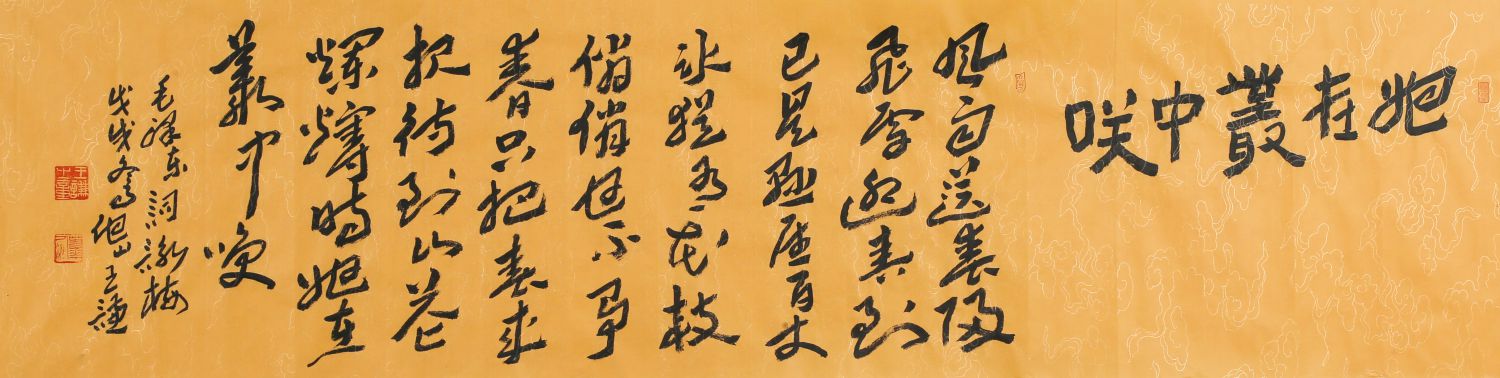 她在叢中咲
风雨送春归
飛雪迎春到
已是懸崖百丈
冰犹有花枝
俏俏也不争
春只把春来
报待到山花
爛熳時她在
叢中咲
毛泽东词詠梅
戊戌冬山王謙